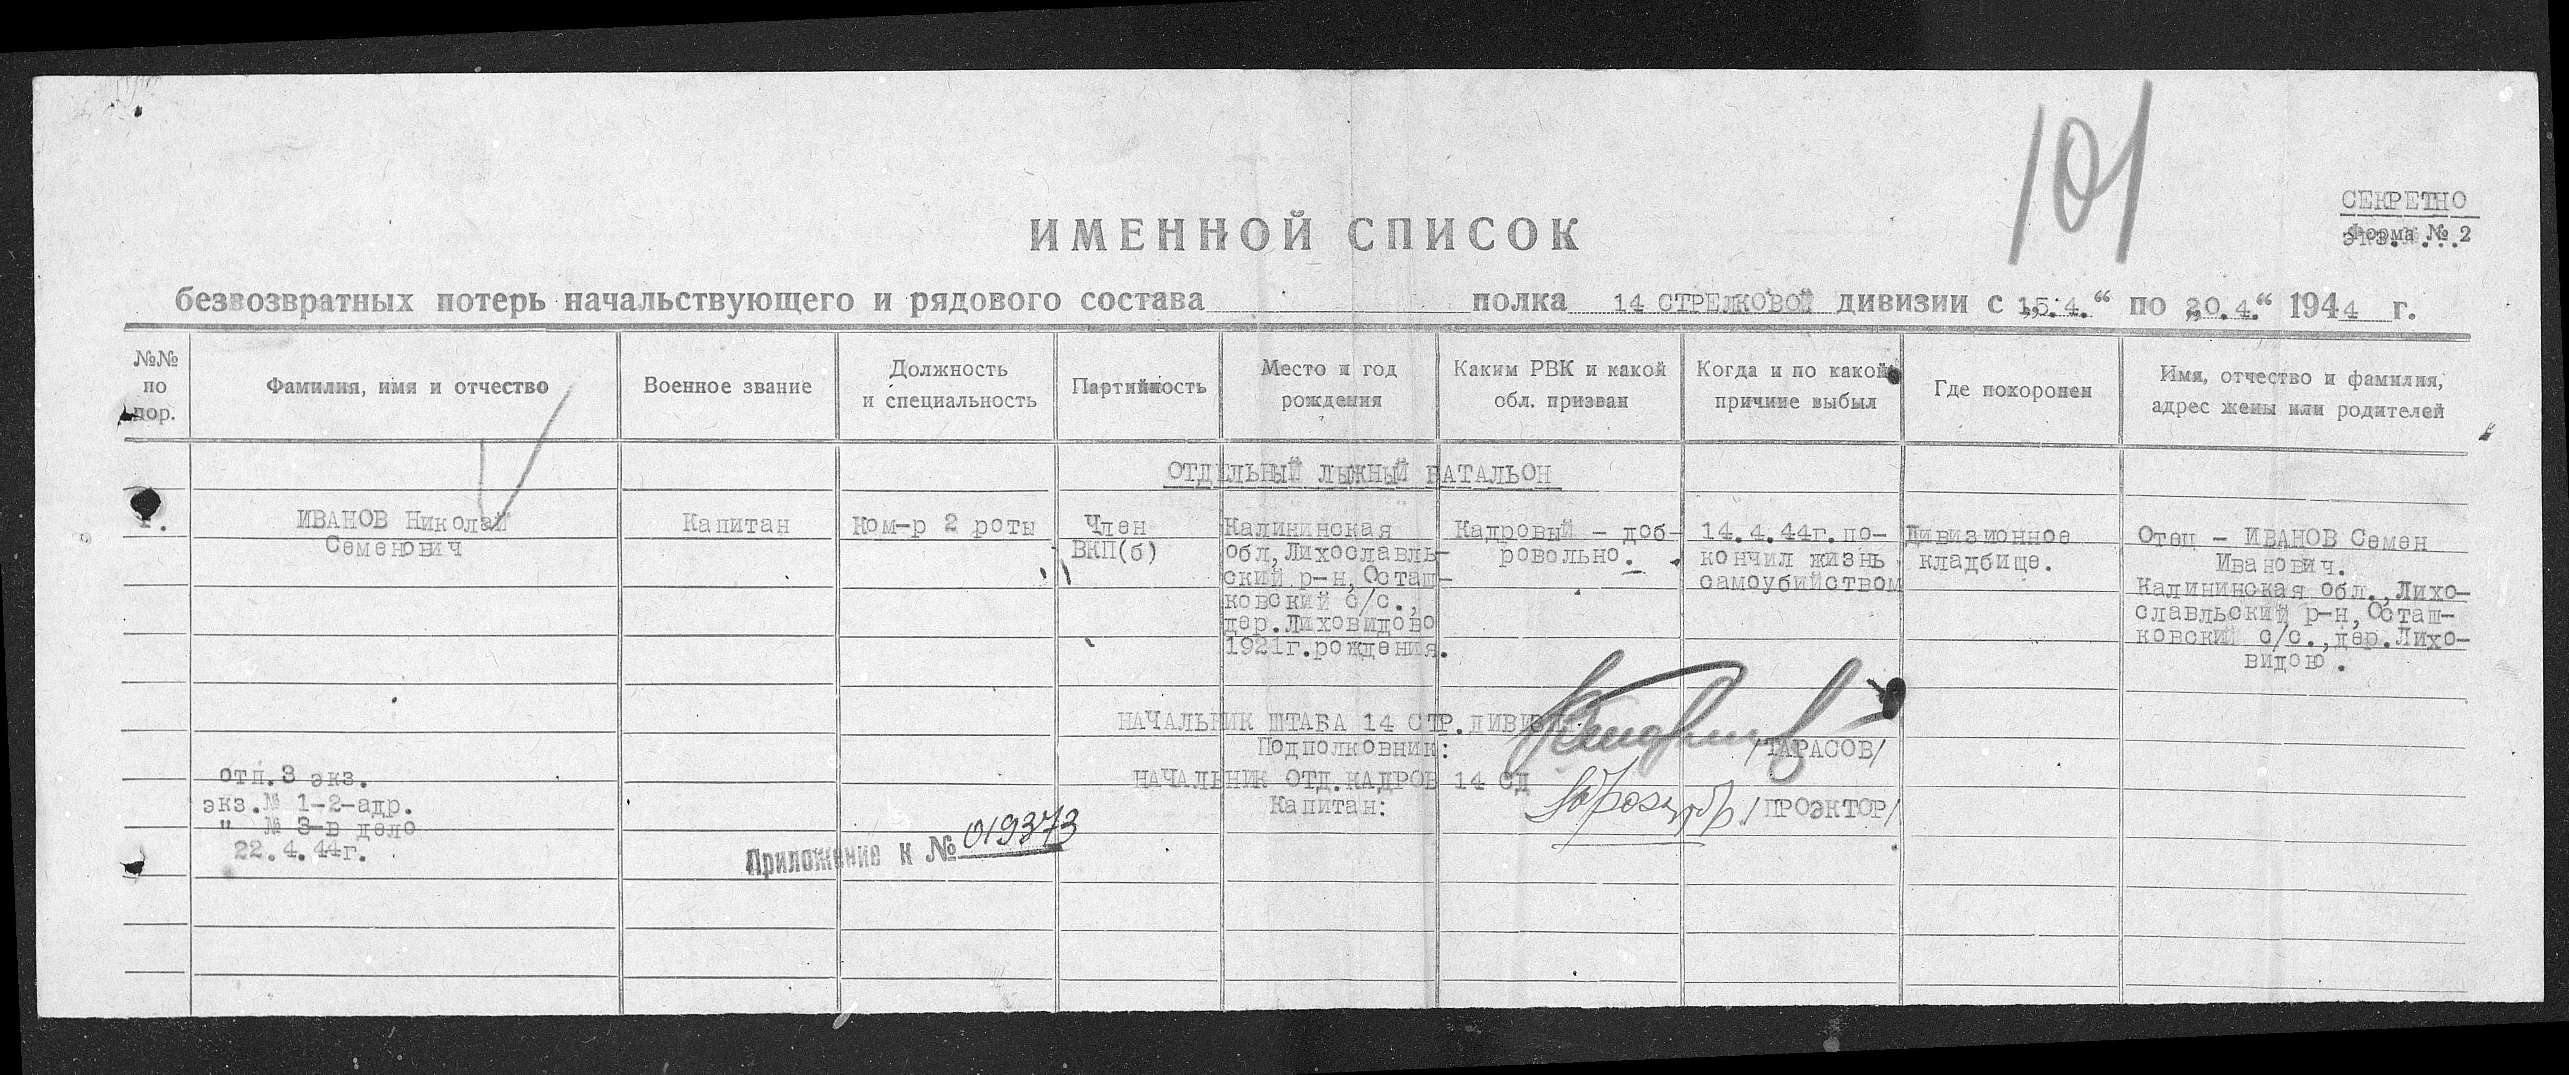 101
СЕКРЕТНО
Форма № 2
ИМЕННОЙ СПИСОК
безвозвратных потерь начальствующего и рядового состава полка 14 СТРЕЛКОВОЙ дивизии с „15.4.“ по „20.4.“ 1944 г.
№№
по
пор.
Фамилия, имя и отчество
Военное звание
Должность
и специальность
Партийность
Место и год
рождения
Каким РВК и какой
обл. призван
Когда и по какой
причине выбыл
Где похоронен
Имя, отчество и фамилия,
адрес жены или родителей
ОТДЕЛЬНЫЙ ЛЫЖНЫЙ БАТАЛЬОН
1.
ИВАНОВ Николай
Семенович
Капитан
Ком-р 2 роты
Член
ВКП(б)
Калининская
обл,Лихославль-
ский р-н,Осташ-
ковский с/с.,
дер.Лиховидово
1921г.рождения.
Кадровый - доб-
ровольно.
14.4.44г.по-
кончил жизнь
самоубийством
Дивизионное
кладбище.
Отец - ИВАНОВ Семен
Иванович.
Калининская обл.,Лихо-
славльский р-н,Осташ-
ковский с/с.,дер.Лихо-
видою.
НАЧАЛЬНИК ШТАБА 14 СТР.ДИВИЗИИ
Подполковник: /ТАРАСОВ/
НАЧАЛЬНИК ОТД.КАДРОВ 14 СД
Капитан: /ПРОЭКТОР/
отп.3 экз.
экз.№ 1-2-адр.
" № 3-в дело
22.4.44г.
Приложение к № 019373